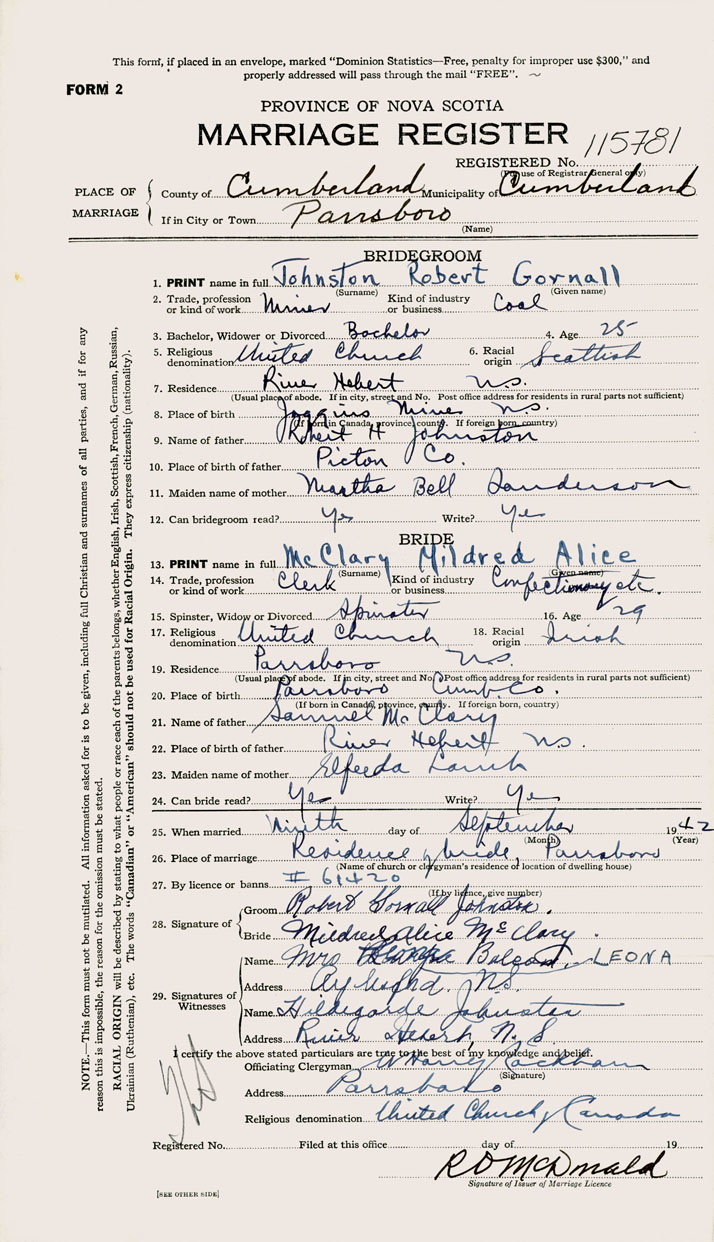 This form, if placed in an envelope, marked "Dominion Statistics—Free, penalty for improper use $300," and
properly addressed will pass through the mail "FREE".
FORM 2
PROVINCE OF NOVA SCOTIA
MARRIAGE REGISTER
REGISTERED No. 115781
(For use of Registrar General only)
PLACE OF MARRIAGE
County of Cumberland Municipality of Cumberland
If in City or Town Parrsboro
(Name)
BRIDEGROOM
1. PRINT name in full Johnston Robert Gornall
(Surname) (Given name)
2. Trade, profession or kind of work Miner Kind of industry or business Coal
3. Bachelor, Widower or Divorced Bachelor 4. Age 25
5. Religious denomination United Church 6. Racial origin Scottish
7. Residence River Hebert N.S.
(Usual place of abode. If in city, street and No. Post office address for residents in rural parts not sufficient)
8. Place of birth Joggins Mines N.S.
(If born in Canada, province, county. If foreign born, country)
9. Name of father Robert H Johnston
10. Place of birth of father Picton Co.
11. Maiden name of mother Martha Bell Sanderson
12. Can bridegroom read? Yes Write? Yes
BRIDE
13. PRINT name in full McClary Mildred Alice
(Surname) (Given name)
14. Trade, profession or kind of work Clerk Kind of industry or business Confectionary etc.
15. Spinster, Widow or Divorced Spinster 16. Age 29
17. Religious denomination United Church 18. Racial origin Irish
19. Residence Parrsboro N.S.
(Usual place of abode. If in city, street and No. Post office address for residents in rural parts not sufficient)
20. Place of birth Parrsboro Cumb. Co.
(If born in Canada, province, county. If foreign born, country)
21. Name of father Samuel McClary
22. Place of birth of father River Hebert N.S.
23. Maiden name of mother Elfreda Lamb
24. Can bride read? Yes Write? Yes
25. When married Ninth day of September 1942
(Month) (Year)
26. Place of marriage Residence of bride, Parrsboro
(Name of church or clergyman's residence of location of dwelling house)
27. By licence or banns # 61420
(If by licence, give number)
28. Signature of
Groom Robert Gornall Johnston.
Bride Mildred Alice McClary.
29. Signatures of Witnesses
Name Mrs Balcom, LEONA
Address N.S.
Name Hildegarde Johnston
Address River Hebert, N.S.
I certify the above stated particulars are true to the best of my knowledge and belief.
Officiating Clergyman W Harry Rackham
(Signature)
Address Parrsboro
Religious denomination United Church of Canada
Registered No. Filed at this office day of 19
R D McDonald
Signature of Issuer of Marriage Licence
[SEE OTHER SIDE]
NOTE.—This form must not be mutilated. All information asked for is to be given, including full Christian and surnames of all parties, and if for any
reason this is impossible, the reason for the omission must be stated.
RACIAL ORIGIN will be described by stating to what people or race each of the parents belongs, whether English, Irish, Scottish, French, German, Russian,
Ukrainian (Ruthenian), etc. The words "Canadian" or "American" should not be used for Racial Origin. They express citizenship (nationality).